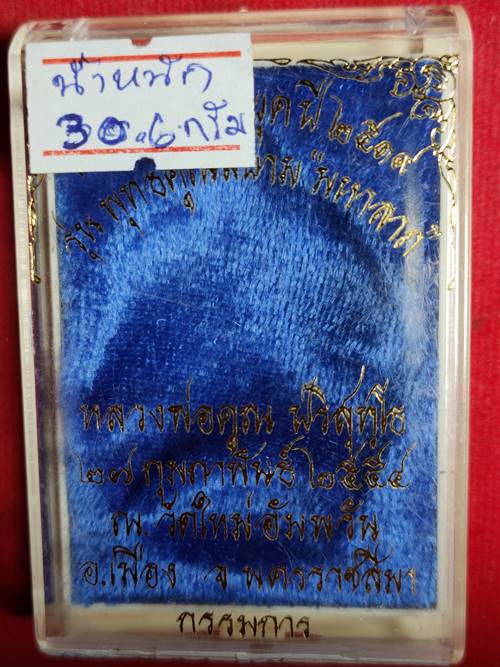 น้ำหนัก
30.6 กรัม
ยุคปี ๒๕๑๙
รุ่น พุทธคูณสยาม "มหาลาภ"
หลวงพ่อคูณ ปริสุทฺโธ
๒๗ กุมภาพันธ์ ๒๕๕๔
ณ. วัดใหม่อัมพวัน
อ.เมือง จ นครราชสีมา
กรรมการ